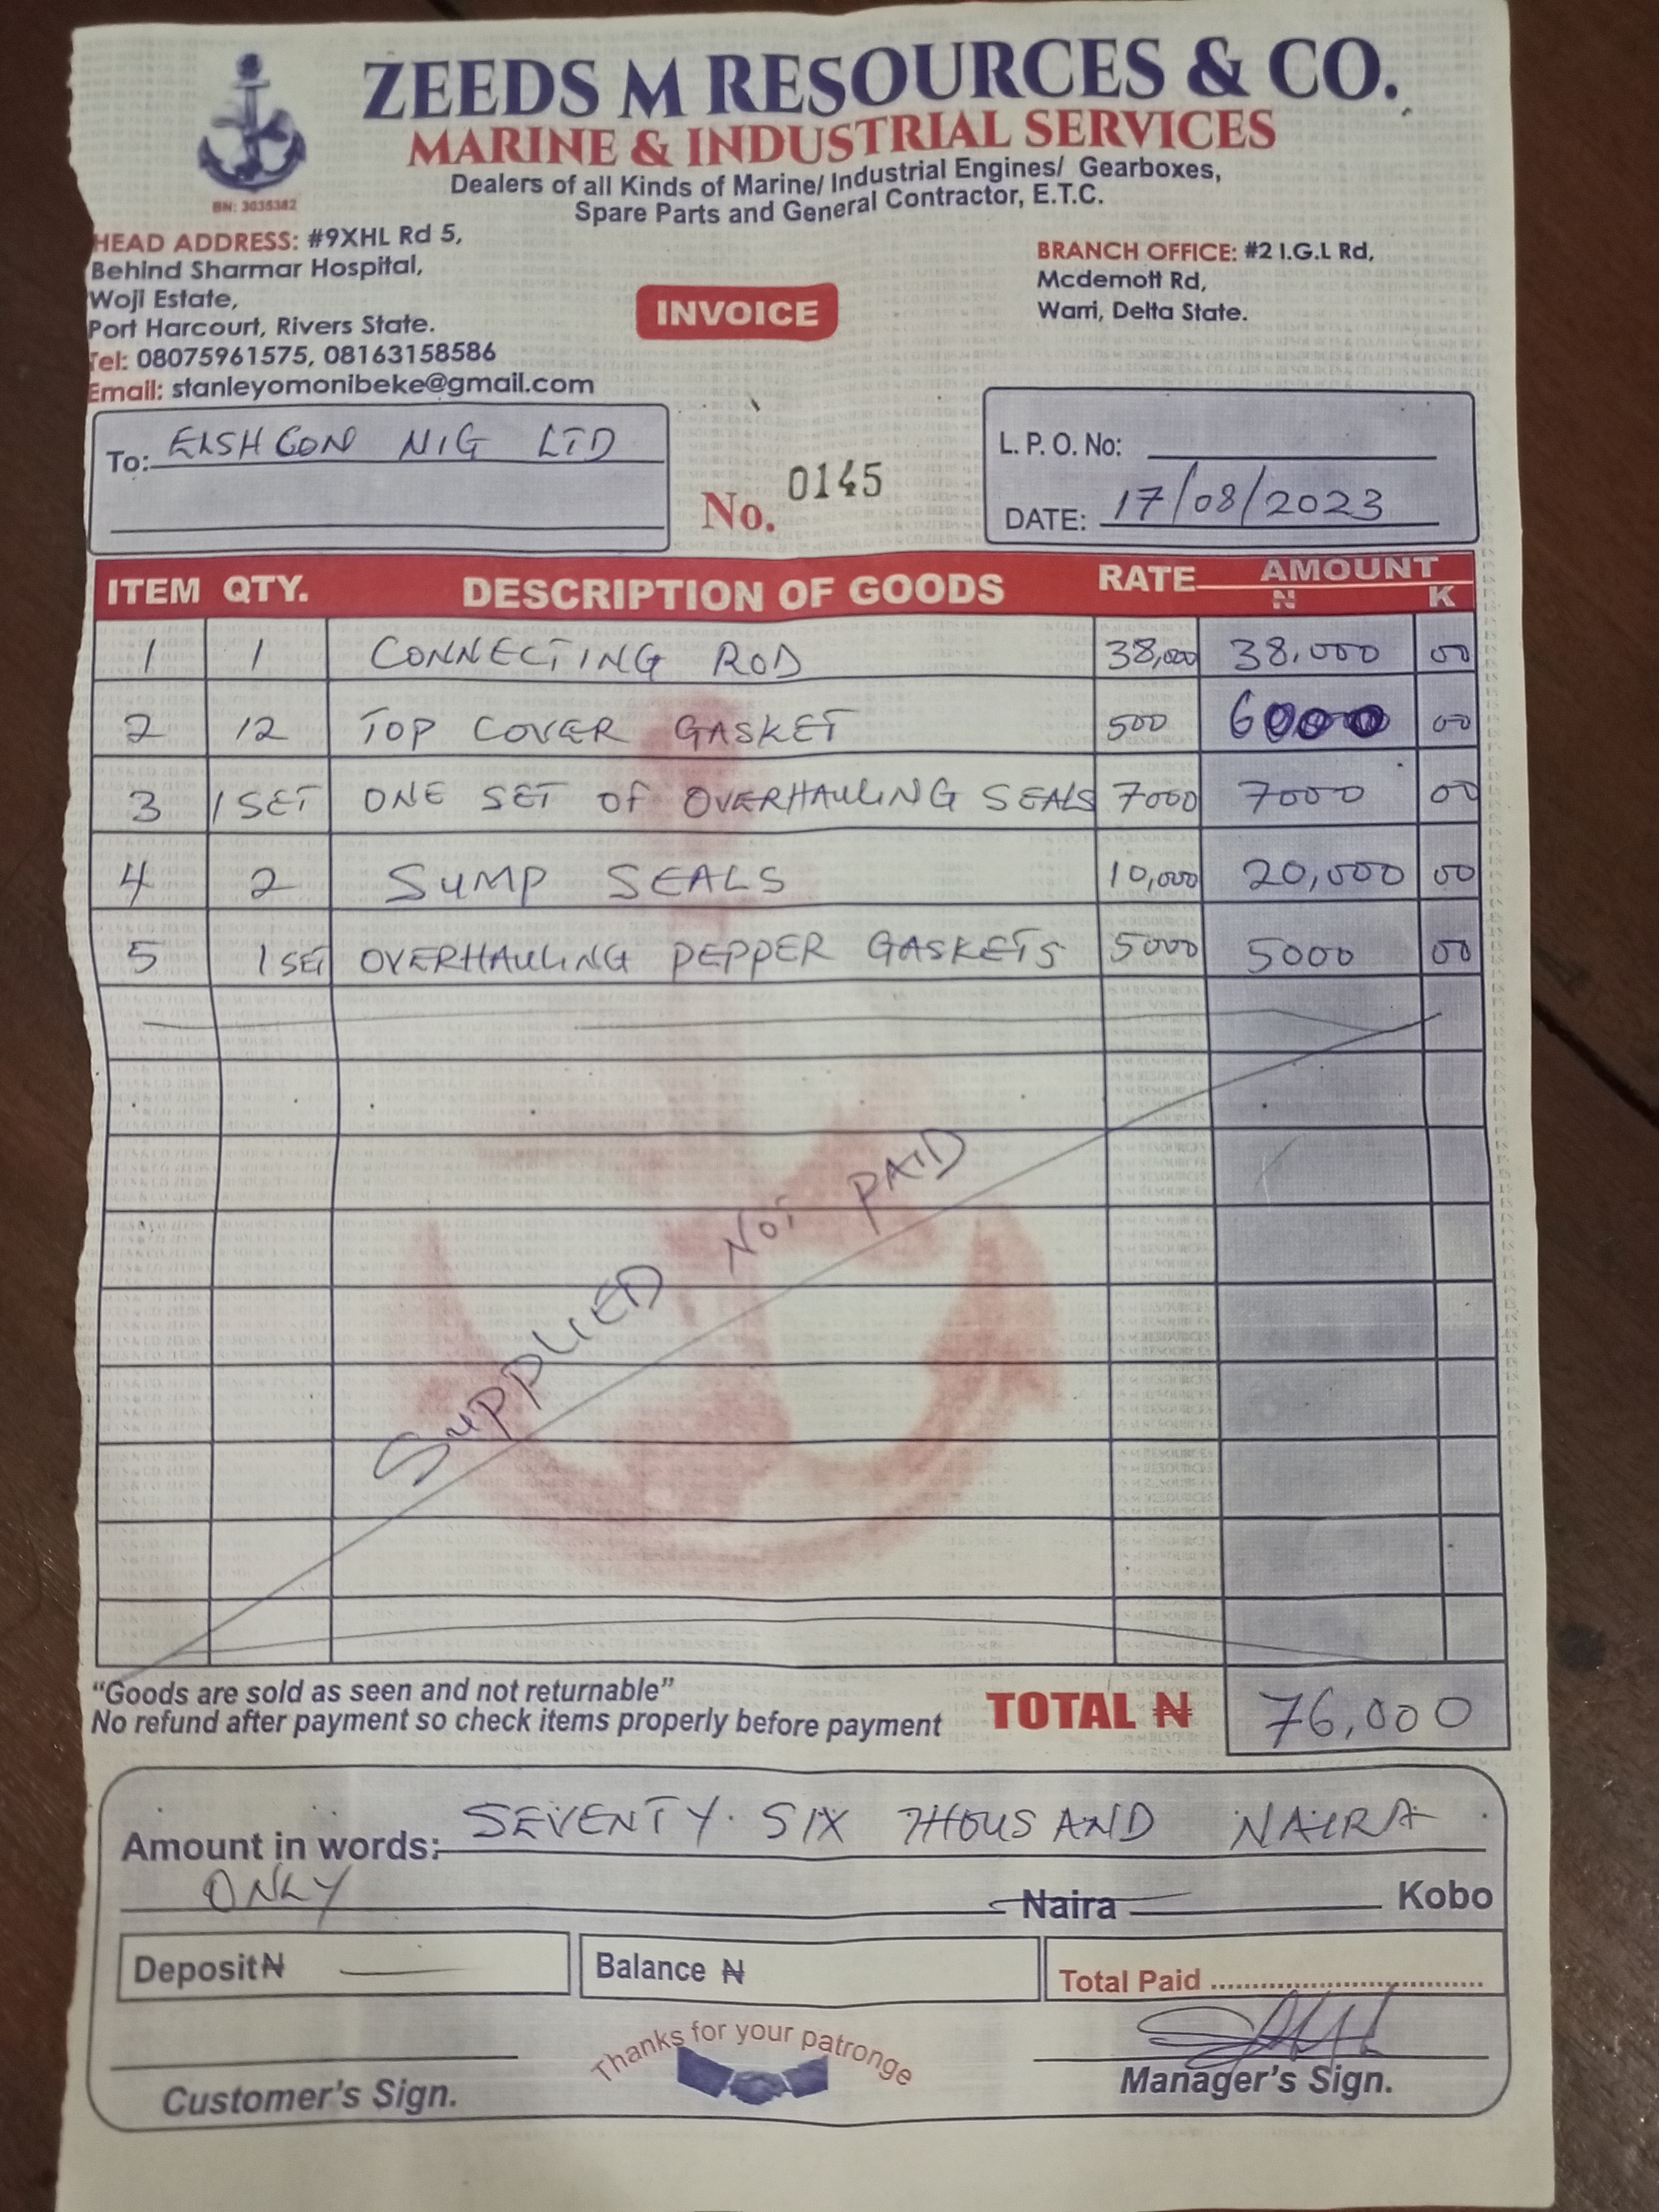 ZEEDS M RESOURCES & CO.
MARINE & INDUSTRIAL SERVICES
Dealers of all Kinds of Marine/ Industrial Engines/ Gearboxes,
Spare Parts and General Contractor, E.T.C.
BN: 3035382
HEAD ADDRESS: #9XHL Rd 5,
Behind Sharmar Hospital,
Woji Estate,
Port Harcourt, Rivers State.
Tel: 08075961575, 08163158586
Email: stanleyomonibeke@gmail.com
INVOICE
BRANCH OFFICE: #2 I.G.L Rd,
Mcdemott Rd,
Warri, Delta State.
To: ELSHCON NIG LTD
No. 0145
L. P. O. No:
DATE: 17/08/2023
ITEM QTY. DESCRIPTION OF GOODS RATE AMOUNT
N K
1 1 CONNECTING ROD 38,000 38,000 00
2 12 TOP COVER GASKET 500 6000 00
3 1 SET ONE SET OF OVERHAULING SEALS 7000 7000 00
4 2 SUMP SEALS 10,000 20,000 00
5 1 SET OVERHAULING PEPPER GASKETS 5000 5000 00
SUPPLIED NOT PAID
"Goods are sold as seen and not returnable"
No refund after payment so check items properly before payment
TOTAL ₦ 76,000
Amount in words: SEVENTY. SIX THOUSAND NAIRA
ONLY Naira Kobo
Deposit ₦ Balance ₦ Total Paid
Thanks for your patronge
Customer's Sign. Manager's Sign.